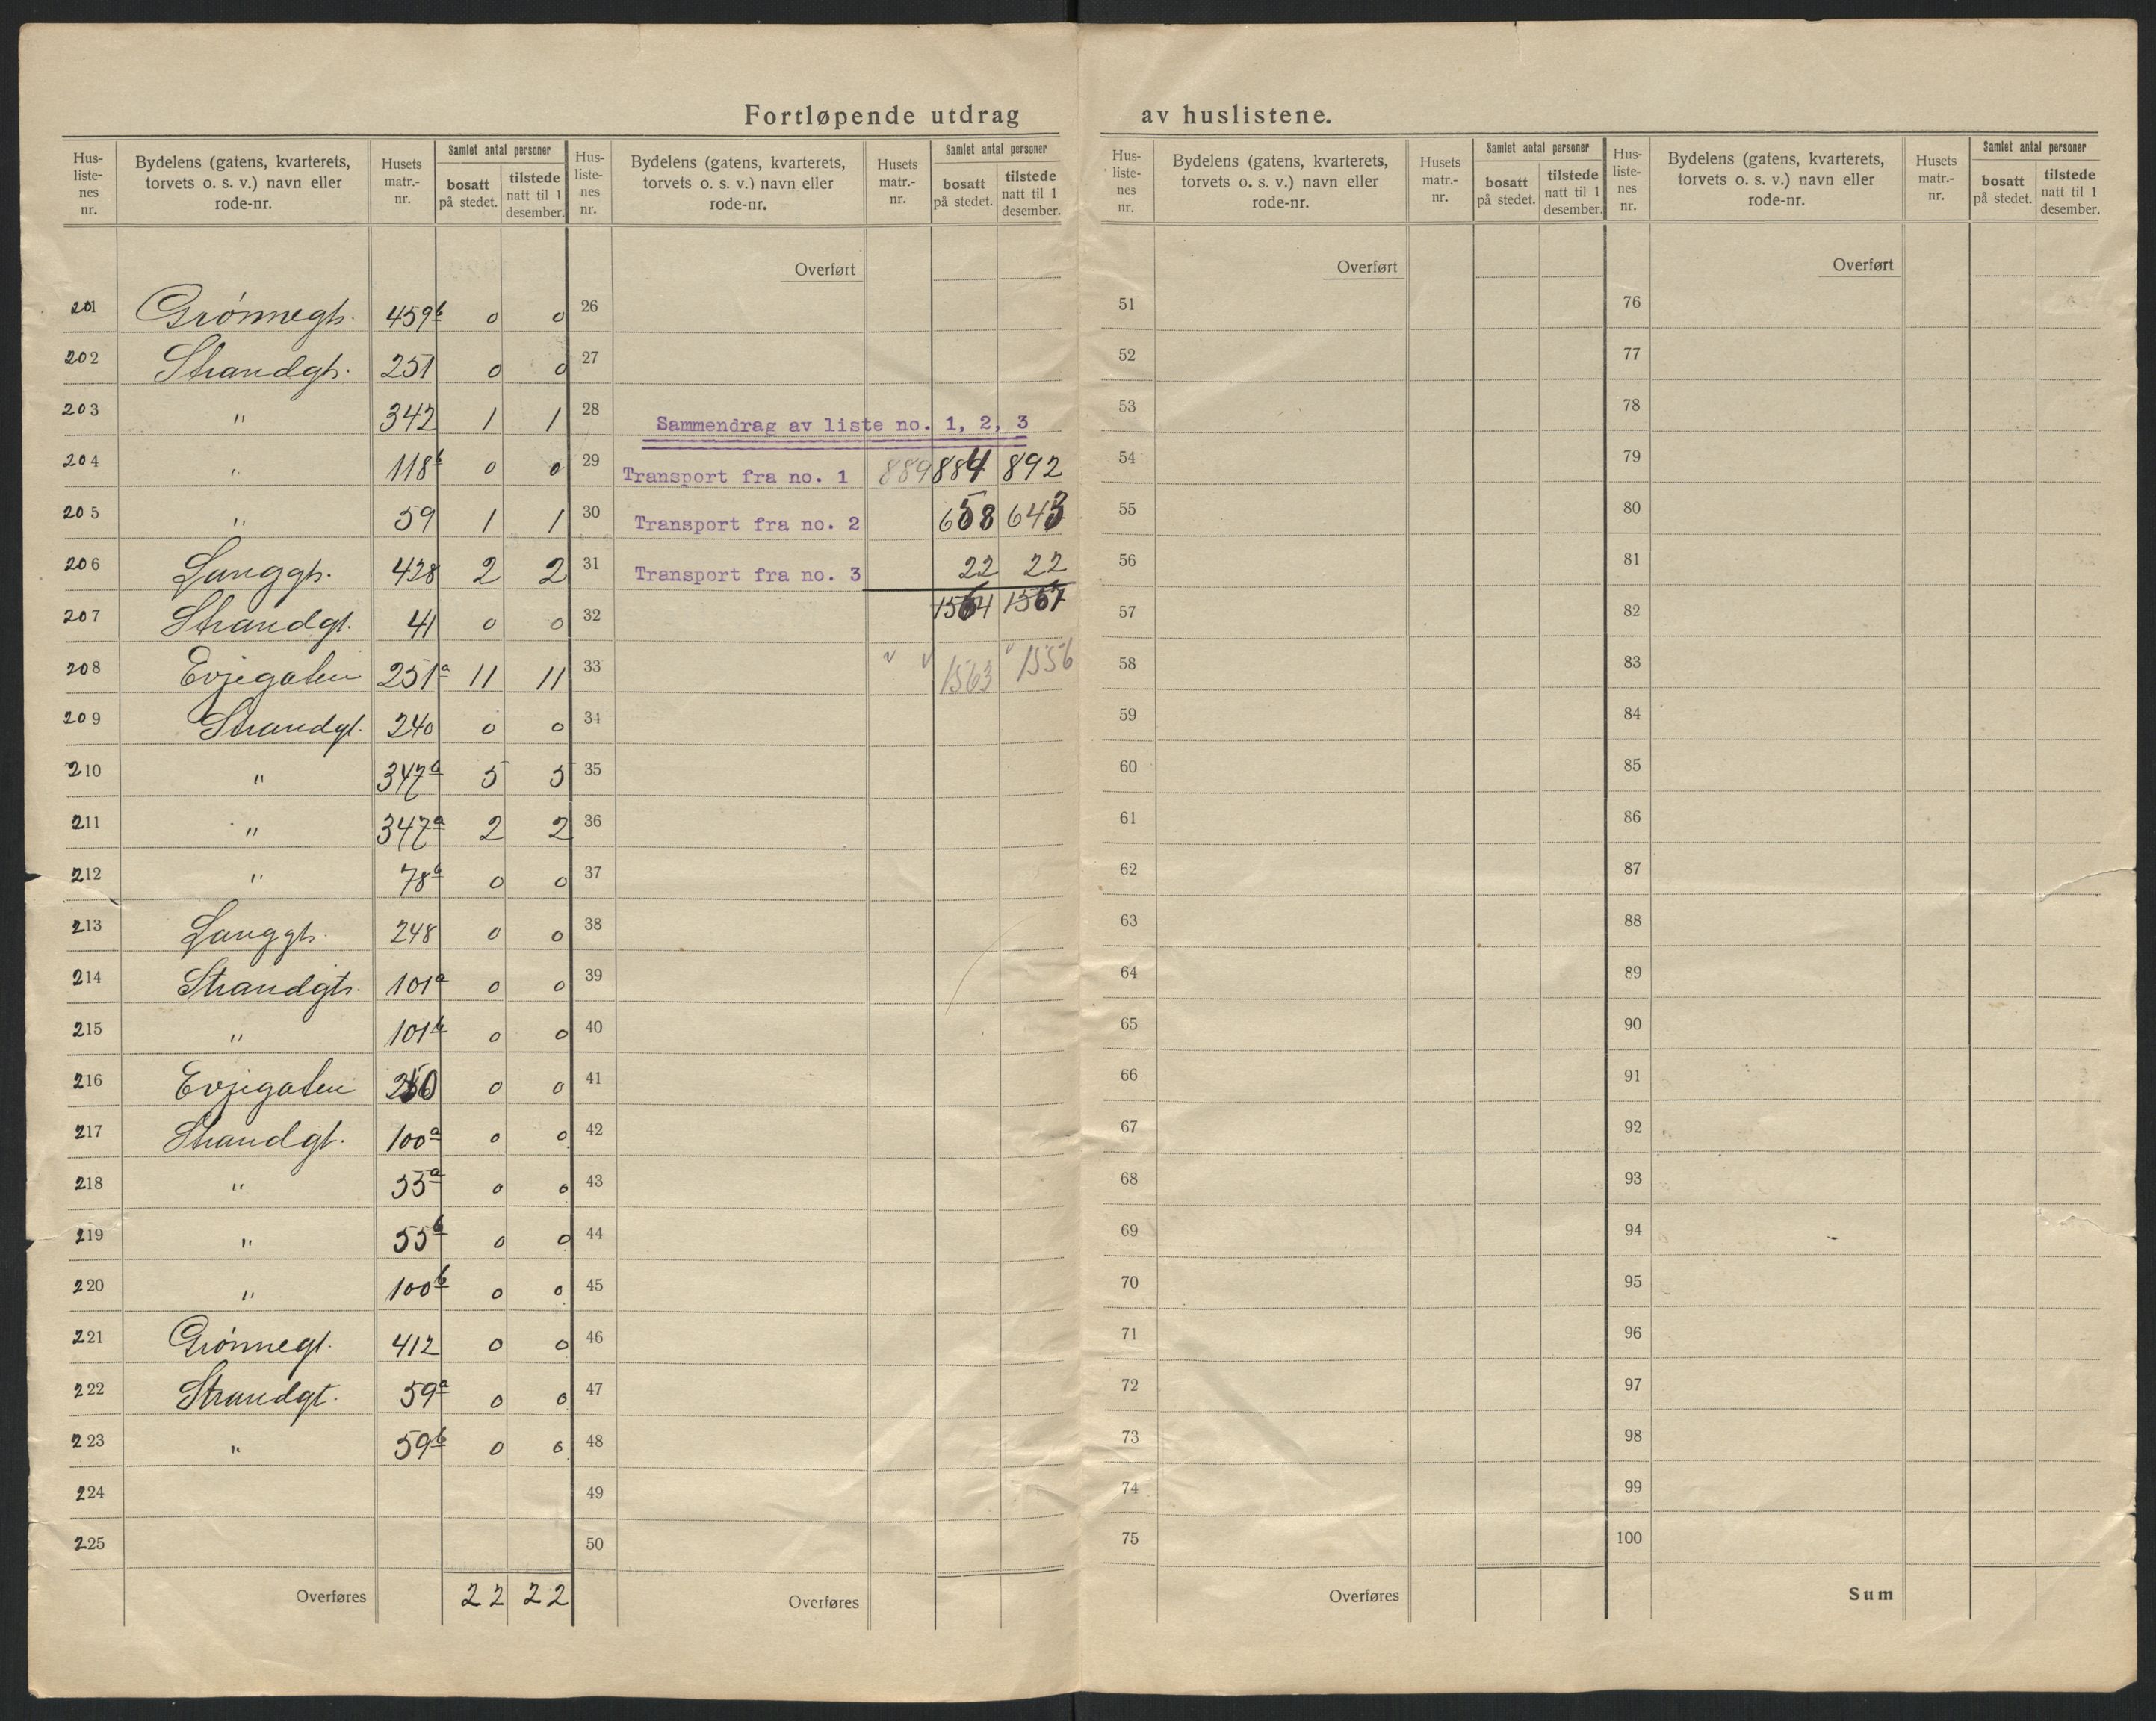 Fortløpende utdrag av huslistene.
Hus-liste-nes nr. | Bydelens (gatens, kvarterets, torvets o. s. v.) navn eller rode-nr. | Husets matr.-nr. | Samlet antal personer | bosatt på stedet. | tilstede natt til 1 desember.
Hus-liste-nes nr. | Bydelens (gatens, kvarterets, torvets o. s. v.) navn eller rode-nr. | Husets matr.-nr. | Samlet antal personer | bosatt på stedet. | tilstede natt til 1 desember.
Hus-liste-nes nr. | Bydelens (gatens, kvarterets, torvets o. s. v.) navn eller rode-nr. | Husets matr.-nr. | Samlet antal personer | bosatt på stedet. | tilstede natt til 1 desember.
Hus-liste-nes nr. | Bydelens (gatens, kvarterets, torvets o. s. v.) navn eller rode-nr. | Husets matr.-nr. | Samlet antal personer | bosatt på stedet. | tilstede natt til 1 desember.
201 Grønnegt. 459b 0 0
202 Strandgt. 251 0 0
203 " 342 1 1
204 " 118b 0 0
205 " 59 1 1
206 Langgt. 428 2 2
207 Strandgt. 41 0 0
208 Evjegaten 251a 11 11
209 Strandgt. 240 0 0
210 " 347a 5 5
211 " 347a 2 2
212 " 78a 0 0
213 Langgt. 248 0 0
214 Strandgt. 101a 0 0
215 " 101b 0 0
216 Evjegaten 250 0 0
217 Strandgt. 100a 0 0
218 " 55a 0 0
219 " 55b 0 0
220 " 100b 0 0
221 Grønnegt. 412 0 0
222 Strandgt. 59a 0 0
223 " 59b 0 0
224
225
Overføres 22 22
Overført
26
27
28 Sammendrag av liste no. 1, 2, 3
29 Transport fra no. 1 889 884 892
30 Transport fra no. 2 658 643
31 Transport fra no. 3 22 22
32 1564 1557
33 1563 1556
34
35
36
37
38
39
40
41
42
43
44
45
46
47
48
49
50
Overføres
Overført
51
52
53
54
55
56
57
58
59
60
61
62
63
64
65
66
67
68
69
70
71
72
73
74
75
Overføres
Overført
76
77
78
79
80
81
82
83
84
85
86
87
88
89
90
91
92
93
94
95
96
97
98
99
100
Sum